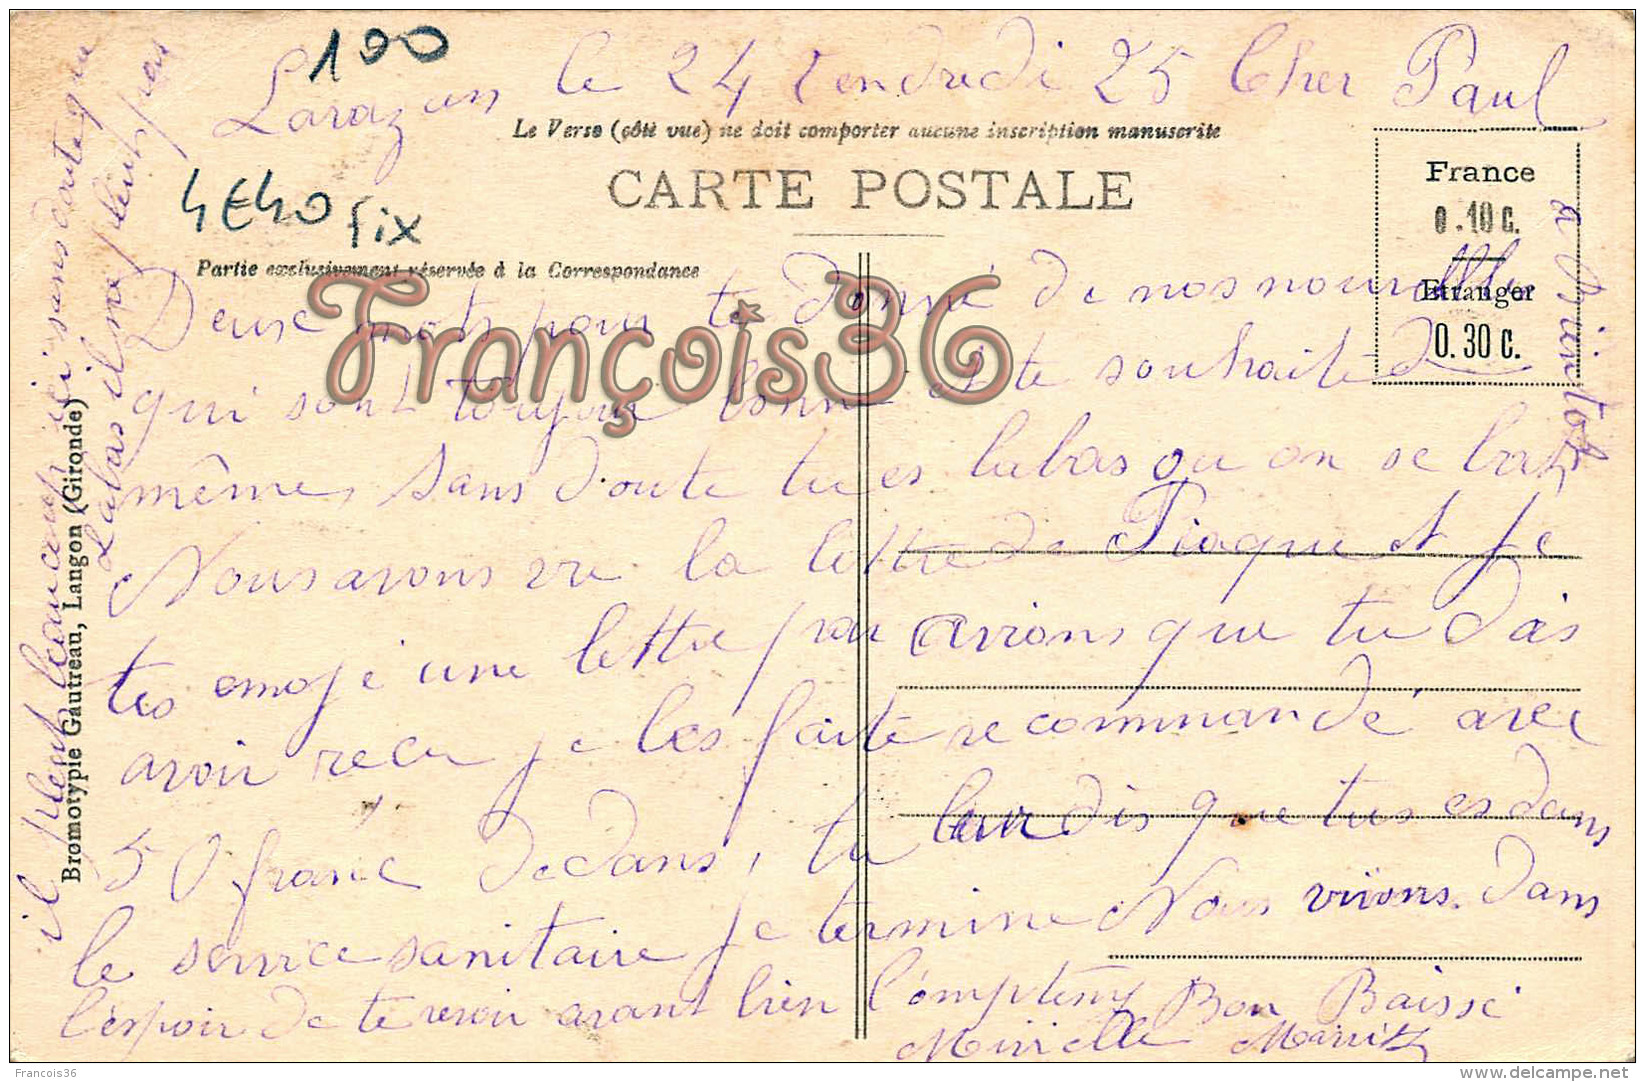 100
Larazan le 24 Vendredi 25 Cher Paul
Le Verso (côté vue) ne doit comporter aucune inscription manuscrite
CARTE POSTALE
France
0.10 c.
Etranger
0.30 c.
4E40 fix
Partie exclusivement réservée à la Correspondance
Deux mots pour te donné de nos nouvelles
qui sont toujour bonne et te souhaite de
même, sans doute tu es labas ou on se bat
Nous avons vu la lettre de Piaque et je
tes emoyé une lettre par avions que tu dois
avoir recu je les faite recommandé avec
50 franc dedans, tu leur dis que tu es dans
le service sanitaire je termine Nous vivons dans
l'espoir de te revoir avant bien l'omptemp Bon Baissé
Mireille Maritz
a biintot
il pleut beaucoup ici sans doute que
labas il ne pleut pas
Bromotypie Gautreau, Langon (Gironde)
François36
Francois36
www.delcampe.net